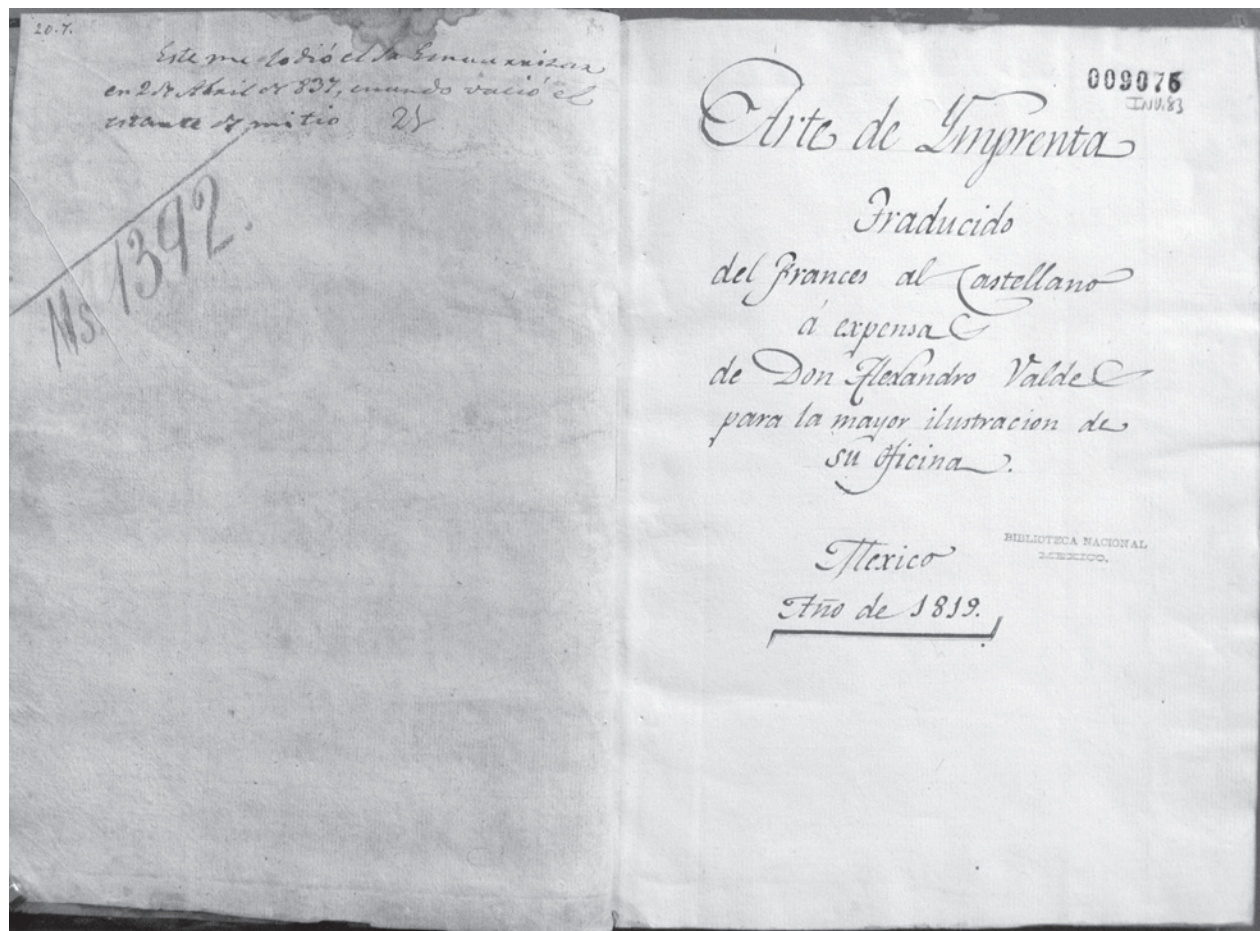 20.7.
Este me lo dió el Sr
en 2 de Abril de 837, cuando vació el
estante de mi tio
Ms. 1392.
009076
INV.83
Arte de Ymprenta
Traducido
del Frances al Castellano
á expensas
de Don Alexandro Valdes
para la mayor ilustracion de
su Oficina.
Mexico
Año de 1819.
BIBLIOTECA NACIONAL
MEXICO.